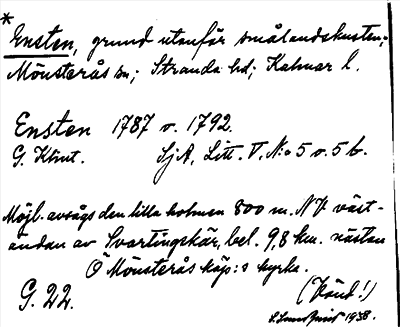 *
Ensten, grund utanför smålandskusten;
Mönsterås sn; Stranda hd; Kalmar l.
Ensten 1787 o. 1792.
G. Klint. SjA, Litt. V, N:o 5 o. 5 b.
Möjl. avsågs den lilla holmen 800 m. NV väst-
ändan av Svartingskär, bel. 9,8 km. nästan
Ö Mönsterås köp:s kyrka.
G. 22. (Vänd!)
S. Lundquist 1938.